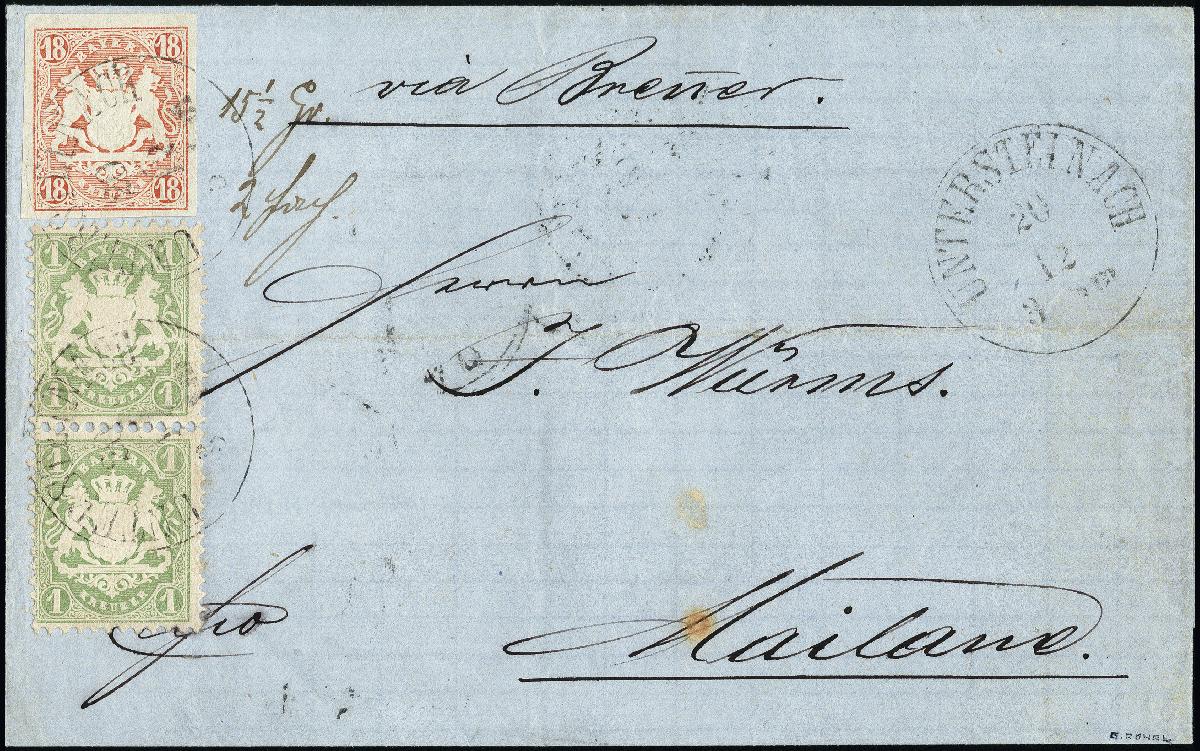 18 18
BAYERN
18 18
KREUZER
15 1/2 Gr.
2 fach.
via Brenner.
UNTERSTEINACH
20
12
3 6
1 1
BAYERN
1 1
KREUZER
1 1
BAYERN
1 1
KREUZER
Herrn
J. Würms.
Mailand.